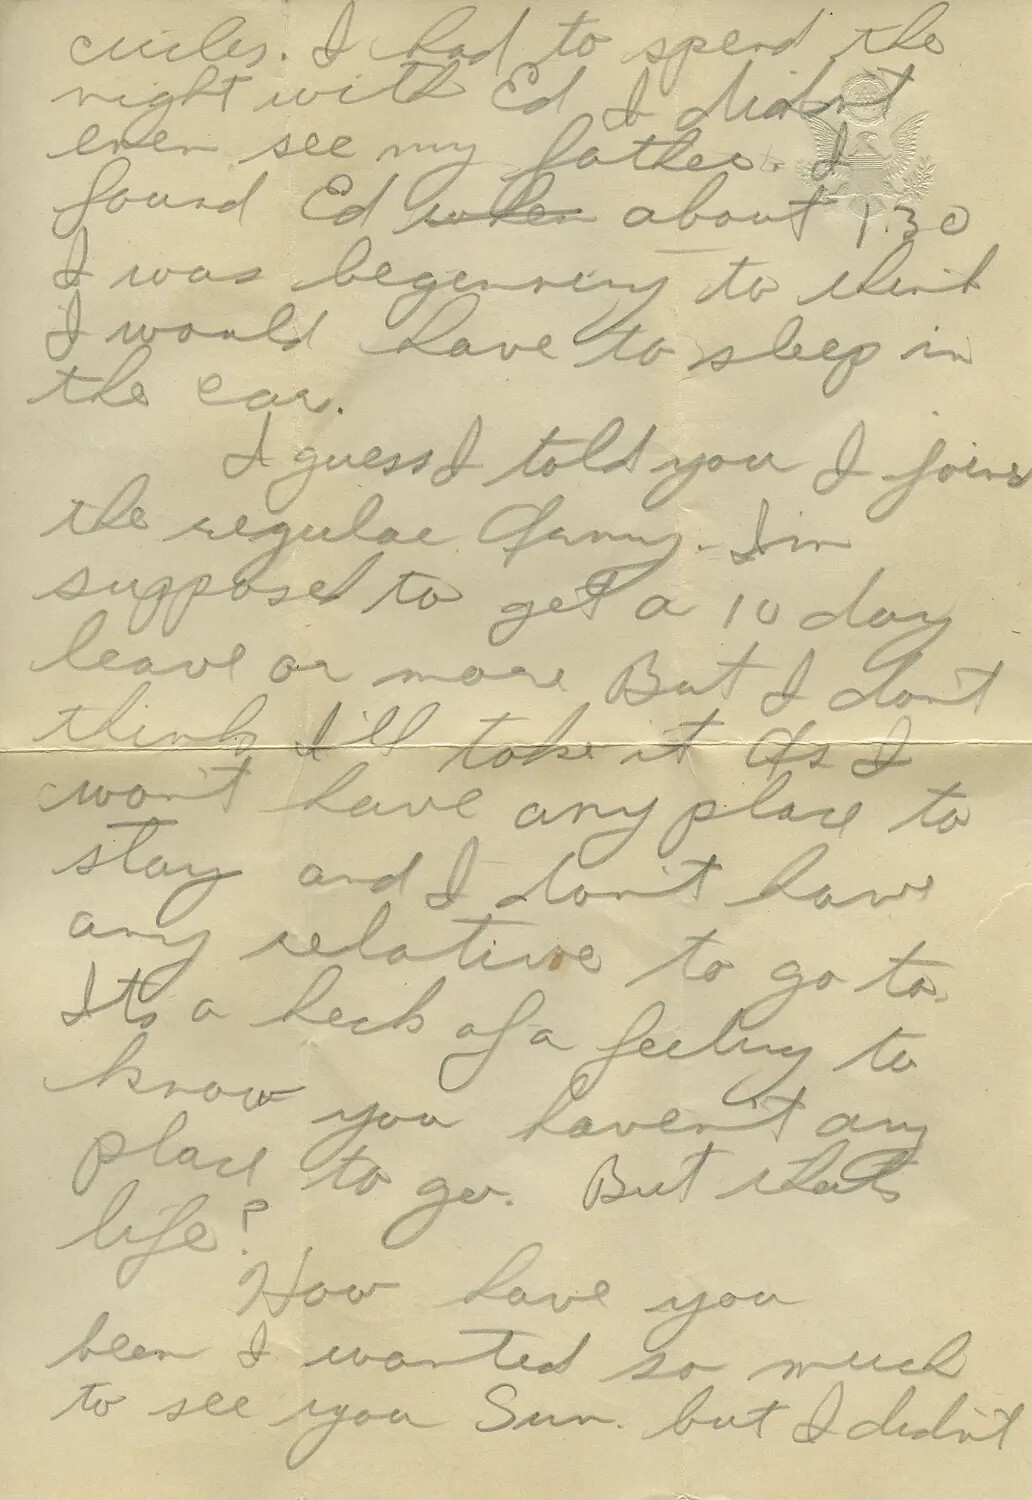 circles. I had to spend the
night with Ed I didn't
even see my father. I
found Ed when about 1:30
I was beginning to think
I would have to sleep in
the car.
I guess I told you I joins
the regular Army. I'm
suppose to get a 10 day
leave or more But I don't
think I'll take it As I
won't have any place to
stay and I don't have
any relative to go to.
Its a heck of a feeling to
know you haven't any
place to go. But thats
life?
How have you
been I wanted so much
to see you Sun. but I didn't